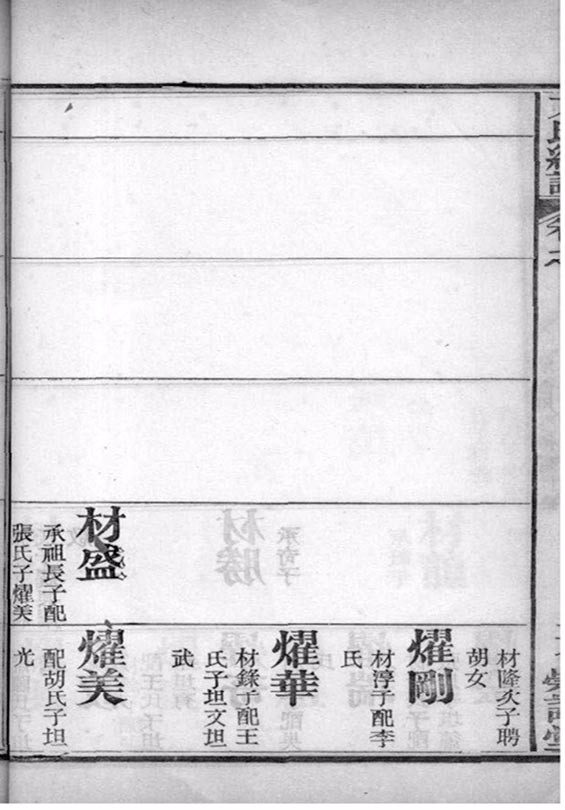 材盛
承祖長子配
張氏子燿美
材隆次子聘
胡女
燿剛
材淳子配李
氏
燿華
材錄子配王
氏子坦文坦
武
燿美
配胡氏子坦
光